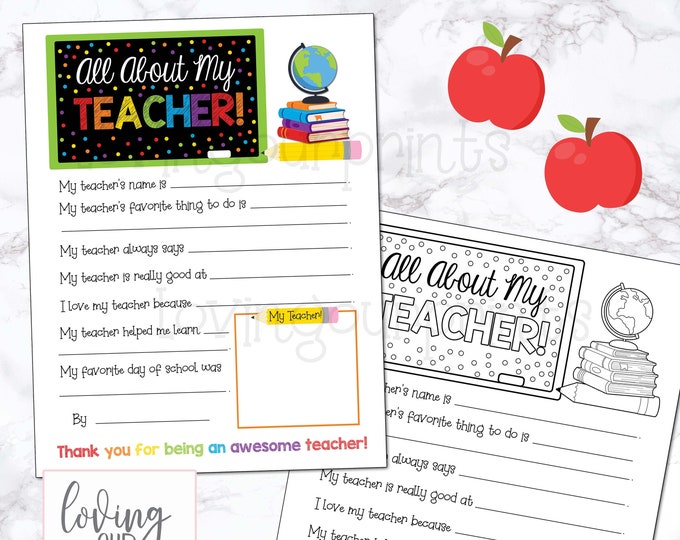 All About My
TEACHER!
My teacher's name is
My teacher's favorite thing to do is
My teacher always says
My teacher is really good at
I love my teacher because
My teacher helped me learn
My favorite day of school was
My Teacher!
By
Thank you for being an awesome teacher!
lovingourprints
lovingourprints
All About My
TEACHER!
teacher's name is
teacher's favorite thing to do is
always says
My teacher is really good at
I love my teacher because
My teacher
loving
our